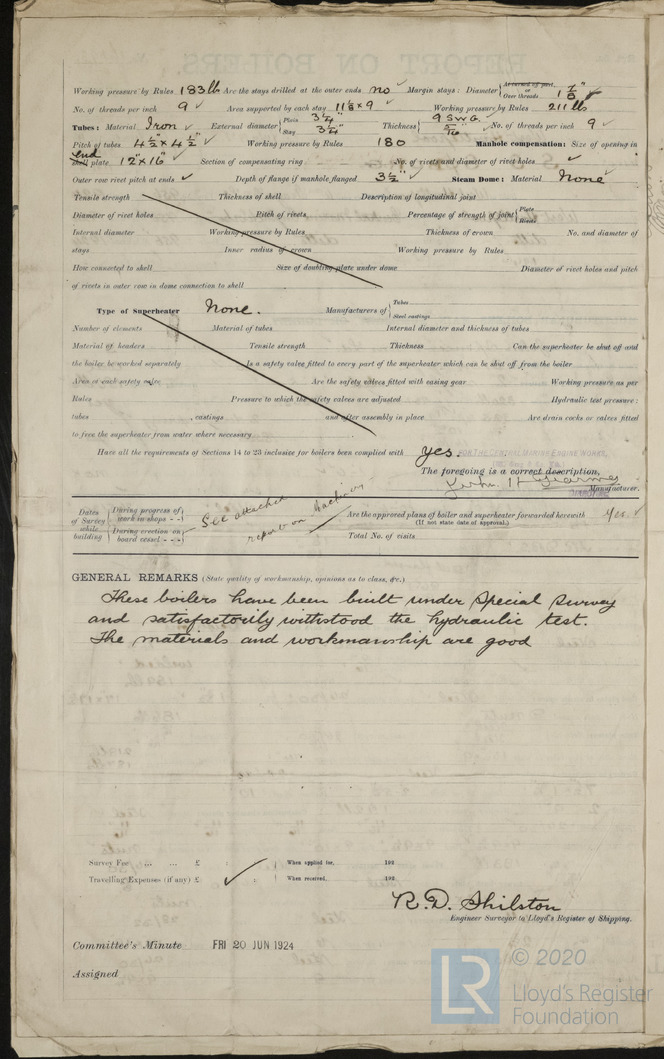 Working pressure by Rules 183 lb Are the stays drilled at the outer ends no Margin stays: Diameter { At turned off part, or Over threads 1 7/8"
No. of threads per inch 9 Area supported by each stay Working pressure by Rules 211 lbs
Tubes: Material Iron External diameter { Plain 3 1/4" Stay 3 1/4" Thickness { 9 S.W.G. 5/16" No. of threads per inch 9
Pitch of tubes 4 1/2" x 4 1/2" Working pressure by Rules 180 Manhole compensation: Size of opening in
end shell plate 12" x 16" Section of compensating ring No. of rivets and diameter of rivet holes
Outer row rivet pitch at ends Depth of flange if manhole flanged 3 1/2" Steam Dome: Material None
Tensile strength Thickness of shell Description of longitudinal joint
Diameter of rivet holes Pitch of rivets Percentage of strength of joint { Plate Rivets
Internal diameter Working pressure by Rules Thickness of crown No. and diameter of
stays Inner radius of crown Working pressure by Rules
How connected to shell Size of doubling plate under dome Diameter of rivet holes and pitch
of rivets in outer row in dome connection to shell
Type of Superheater None. Manufacturers of { Tubes Steel castings
Number of elements Material of tubes Internal diameter and thickness of tubes
Material of headers Tensile strength Thickness Can the superheater be shut off and
the boiler be worked separately Is a safety valve fitted to every part of the superheater which can be shut off from the boiler
Area of each safety valve Are the safety valves fitted with easing gear Working pressure as per
Rules Pressure to which the safety valves are adjusted Hydraulic test pressure:
tubes , castings and after assembly in place Are drain cocks or valves fitted
to free the superheater from water where necessary
Have all the requirements of Sections 14 to 23 inclusive for boilers been complied with yes. FOR THE CENTRAL MARINE ENGINE WORKS,
The foregoing is a correct description,
Manufacturer.
DIRECTOR
Dates of Survey while building { During progress of work in shops - - } See attached report on Machinery Are the approved plans of boiler and superheater forwarded herewith Yes.
(If not state date of approval.)
{ During erection on board vessel - - - } Total No. of visits
GENERAL REMARKS (State quality of workmanship, opinions as to class, &c.)
These boilers have been built under Special Survey
and satisfactorily withstood the hydraulic test.
The materials and workmanship are good
Survey Fee ... ... £ : : When applied for, 192
Travelling Expenses (if any) £ : : When received, 192
R.D. Shilston
Engineer Surveyor to Lloyd's Register of Shipping.
Committee's Minute FRI 20 JUN 1924
Assigned
LR © 2020
Lloyd's Register
Foundation